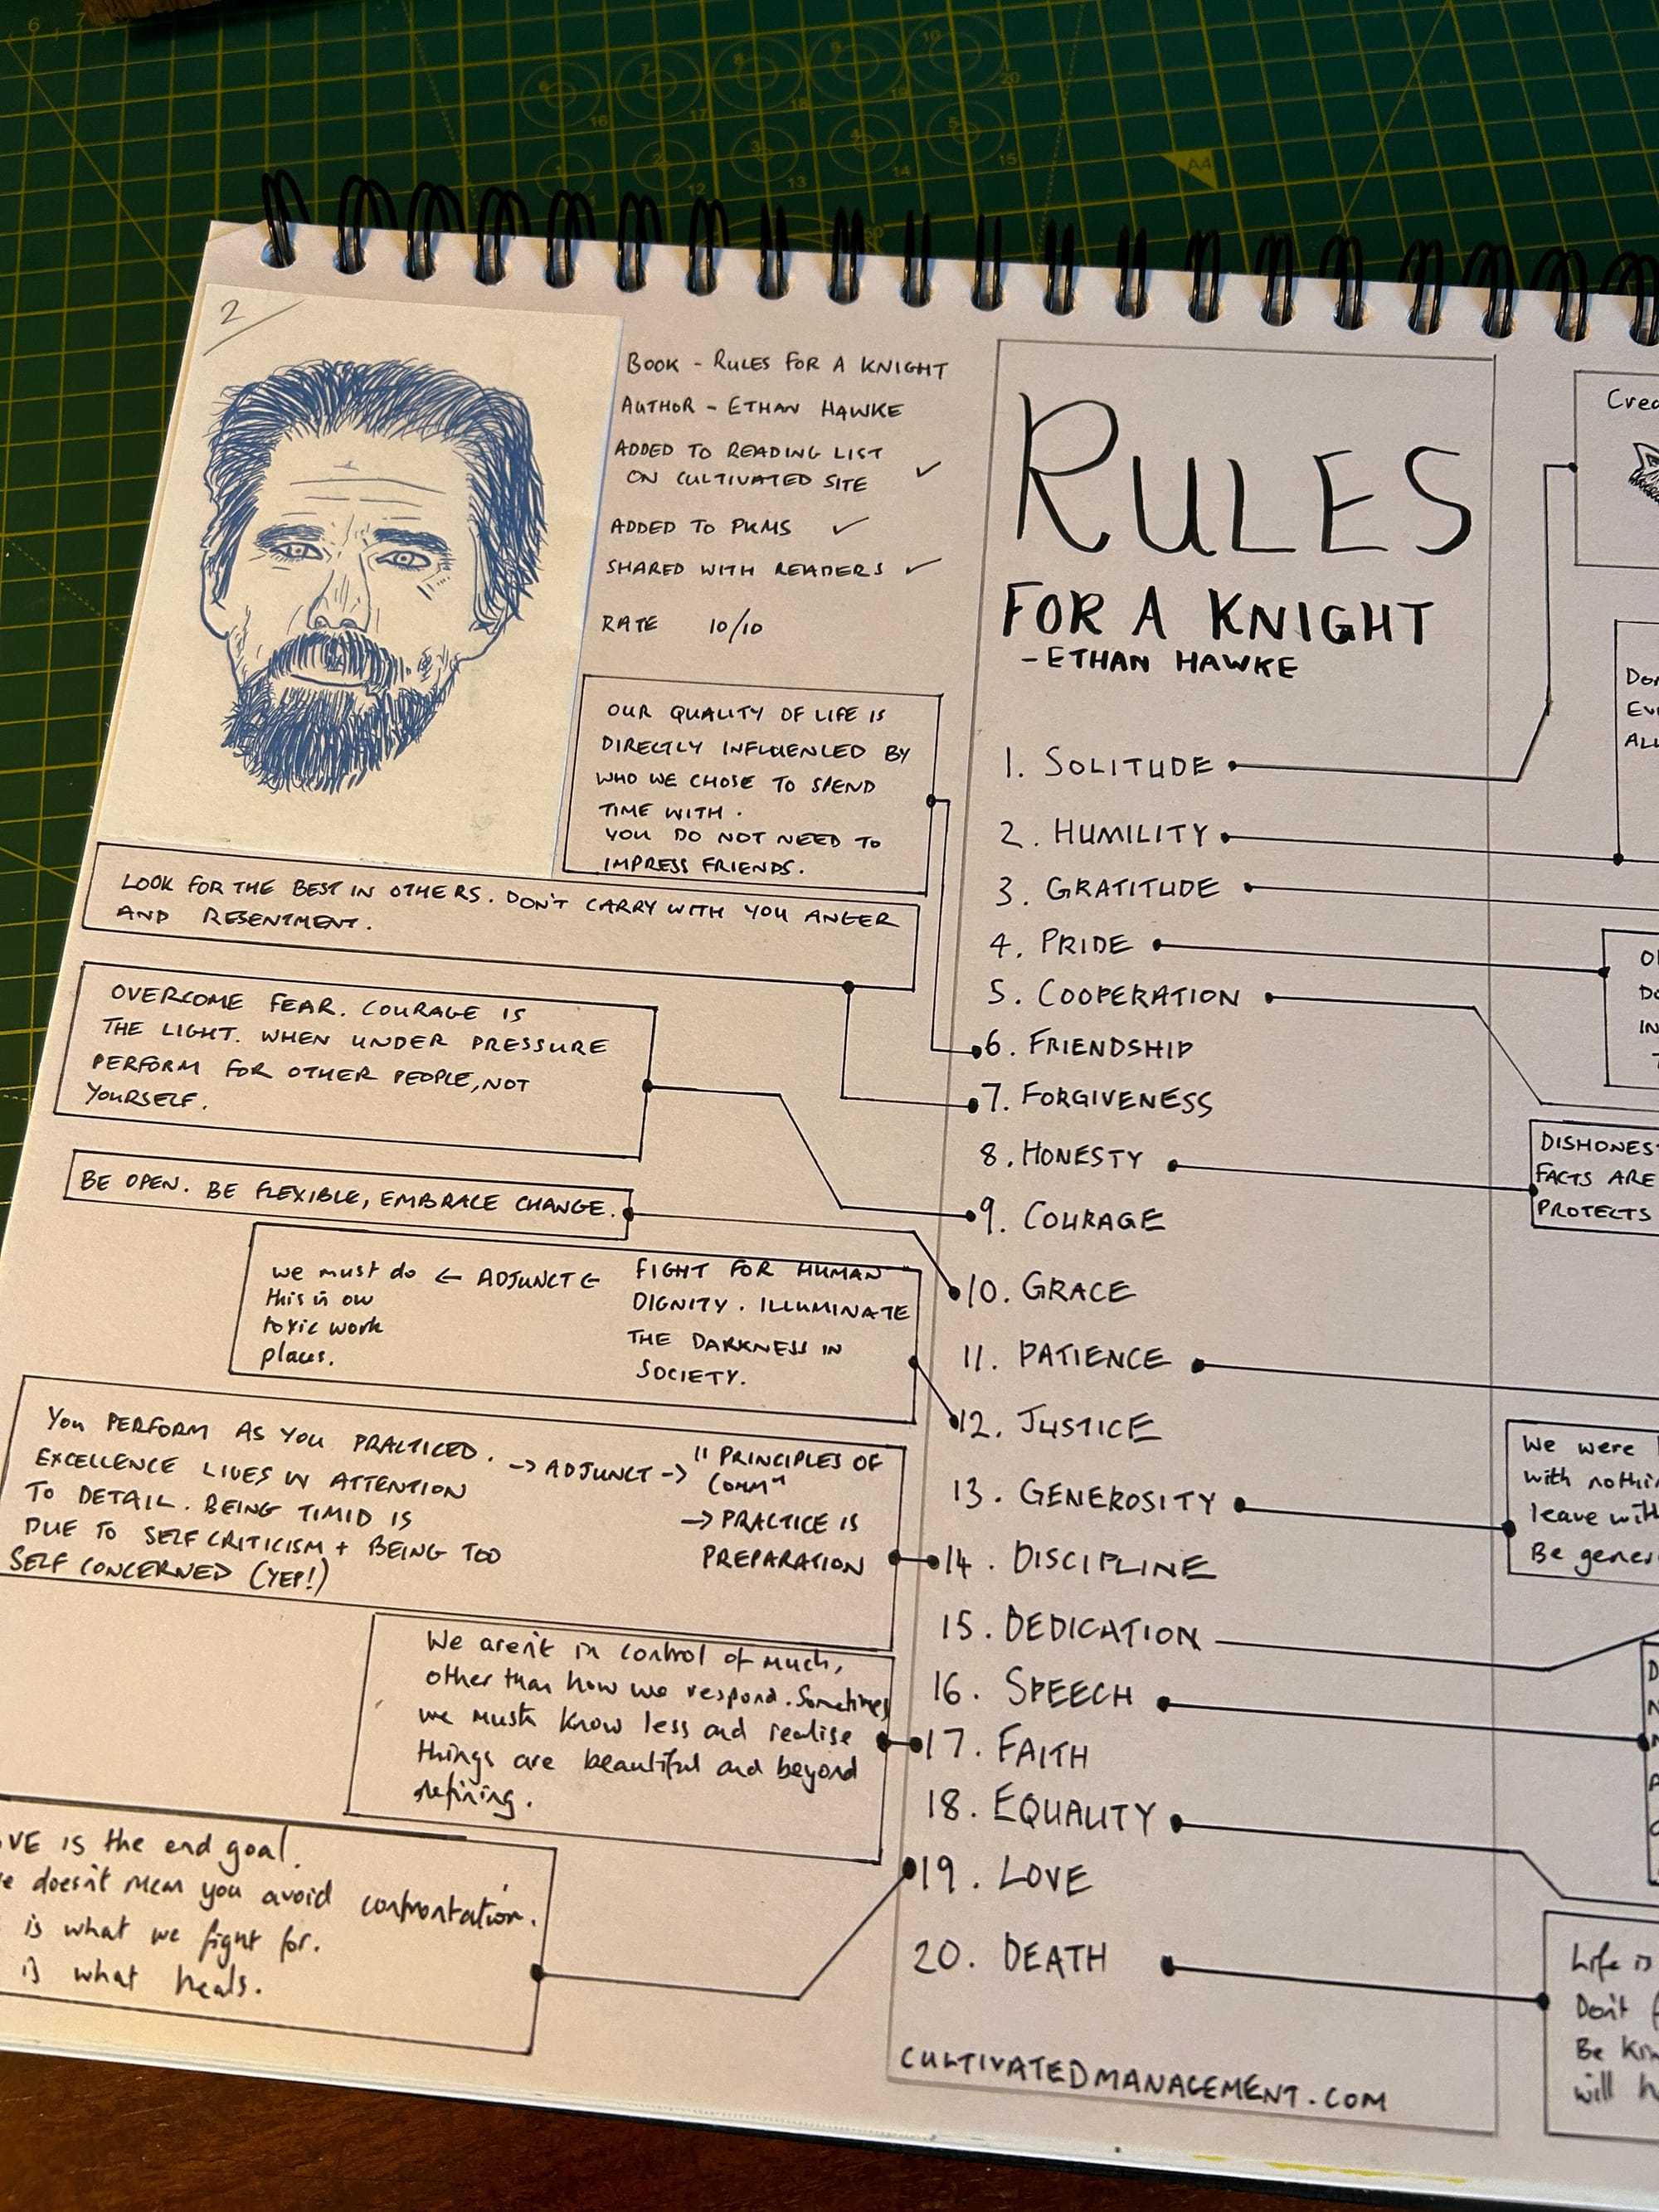 2
BOOK - RULES FOR A KNIGHT
AUTHOR - ETHAN HAWKE
ADDED TO READING LIST
ON CULTIVATED SITE ✓
ADDED TO PKMS ✓
SHARED WITH READERS ✓
RATE 10/10
OUR QUALITY OF LIFE IS
DIRECTLY INFLUENCED BY
WHO WE CHOSE TO SPEND
TIME WITH.
YOU DO NOT NEED TO
IMPRESS FRIENDS.
LOOK FOR THE BEST IN OTHERS. DON'T CARRY WITH YOU ANGER
AND RESENTMENT.
OVERCOME FEAR. COURAGE IS
THE LIGHT. WHEN UNDER PRESSURE
PERFORM FOR OTHER PEOPLE, NOT
YOURSELF.
BE OPEN. BE FLEXIBLE, EMBRACE CHANGE.
we must do ← ADJUNCT ←
this in our
toxic work
places.
FIGHT FOR HUMAN
DIGNITY. ILLUMINATE
THE DARKNESS IN
SOCIETY.
YOU PERFORM AS YOU PRACTICED.
EXCELLENCE LIVES IN ATTENTION
TO DETAIL. BEING TIMID IS
DUE TO SELF CRITICISM + BEING TOO
SELF CONCERNED (YEP!)
→ ADJUNCT → "PRINCIPLES OF
COMM"
→ PRACTICE IS
PREPARATION
We aren't in control of much,
other than how we respond. Sometimes
we must know less and realise
things are beautiful and beyond
refining.
VE is the end goal.
e doesn't mean you avoid confrontation.
is what we fight for.
is what heals.
RULES
FOR A KNIGHT
- ETHAN HAWKE
1. SOLITUDE
2. HUMILITY
3. GRATITUDE
4. PRIDE
5. COOPERATION
6. FRIENDSHIP
7. FORGIVENESS
8. HONESTY
9. COURAGE
10. GRACE
11. PATIENCE
12. JUSTICE
13. GENEROSITY
14. DISCIPLINE
15. DEDICATION
16. SPEECH
17. FAITH
18. EQUALITY
19. LOVE
20. DEATH
CULTIVATEDMANAGEMENT.COM
Crea
Don
EV
ALL
DO
IN
DISHONES
FACTS ARE
PROTECTS
We were
with nothin
leave with
Be gener
Life is
Don't
Be kin
will h
A4